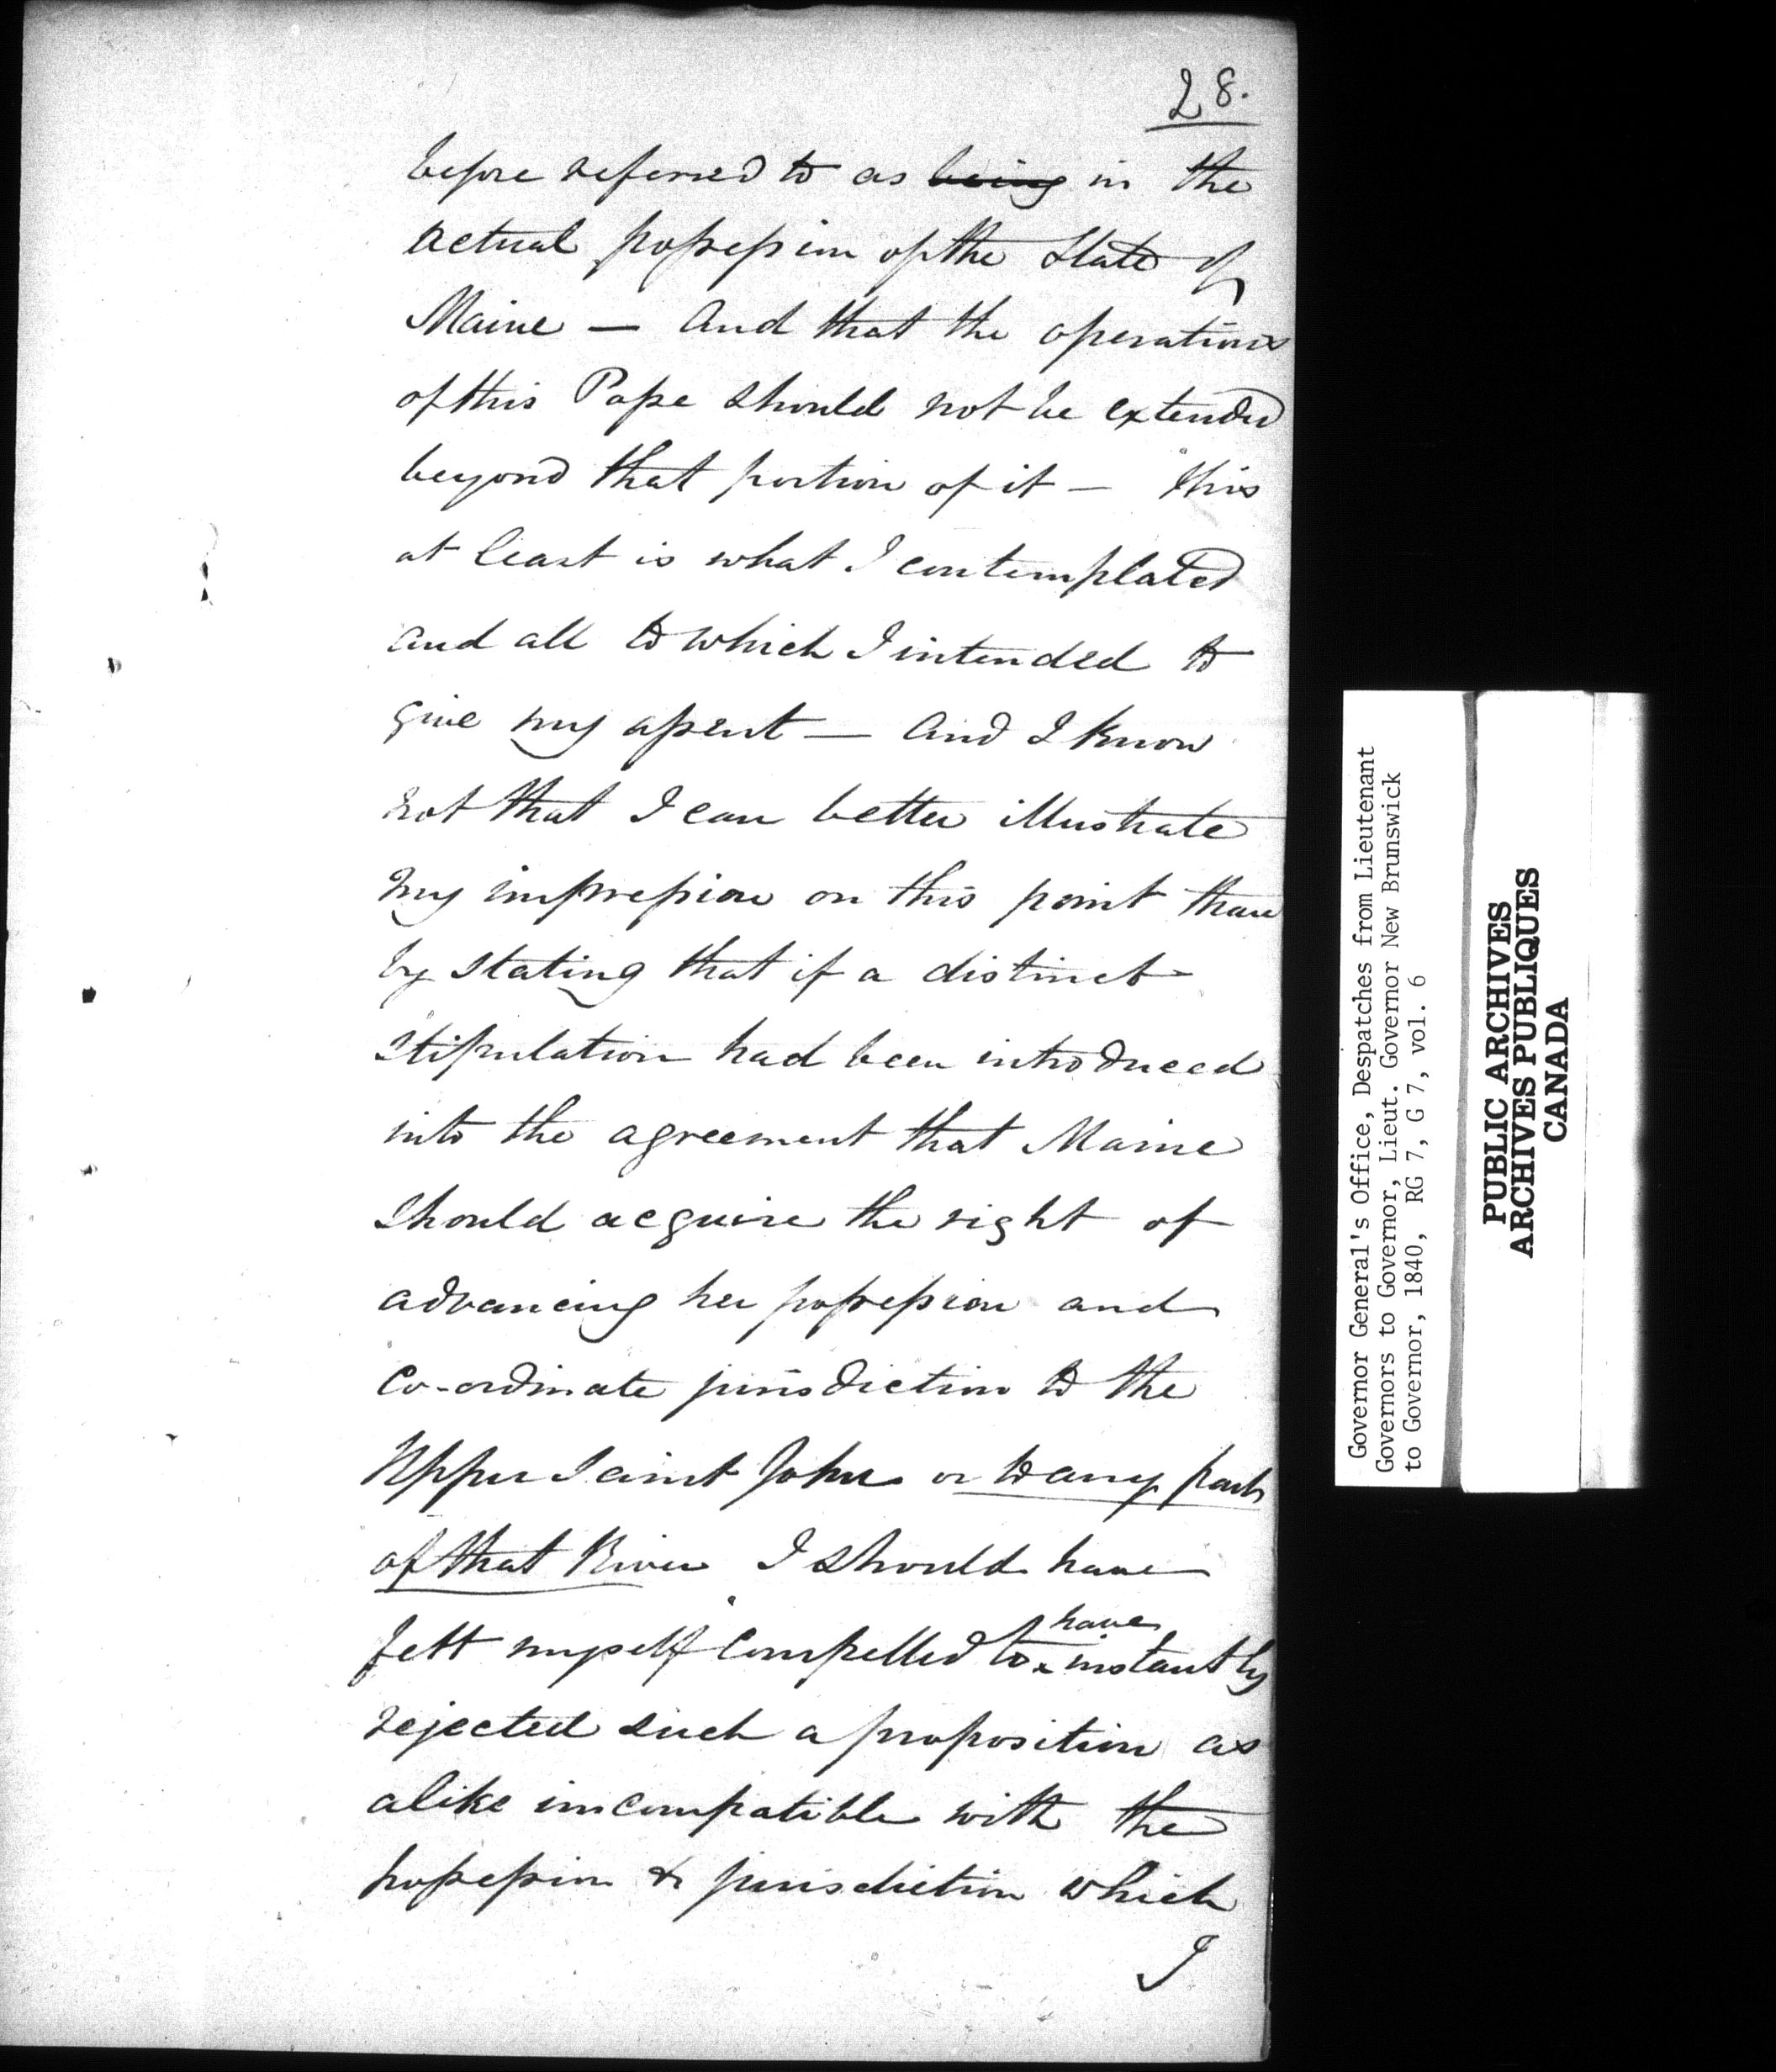 28.
before referred to as being in the
actual possession of the State of
Maine — And that the operations
of this Posse should not be extended
beyond that portion of it — this
at least is what I contemplated
and all to which I intended to
give my assent — And I know
not that I can better illustrate
my impression on this point than
by stating that if a distinct
stipulation had been introduced
into the agreement that Maine
should acquire the right of
advancing her possession and
Co-ordinate jurisdiction to the
Upper Saint John or to any part
of that River I should have
felt myself compelled to have instantly
rejected such a proposition as
alike incompatible with the
possession & jurisdiction which
I
Governor General's Office, Despatches from Lieutenant
Governors to Governor, Lieut. Governor New Brunswick
to Governor, 1840, RG 7, G 7, vol. 6
PUBLIC ARCHIVES
ARCHIVES PUBLIQUES
CANADA